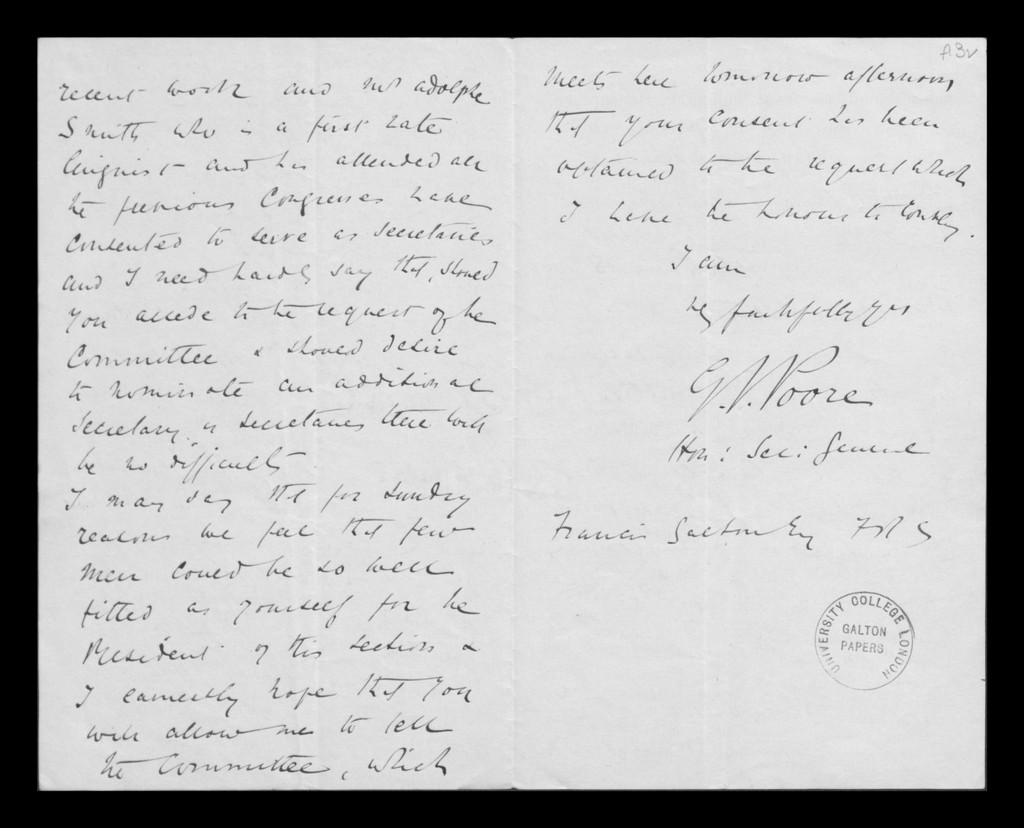 recent work and Mr Adolphe
Smith who is a first rate
linguist and has attended all
the previous Congresses have
consented to serve as Secretaries
and I need hardly say that, should
you accede to the request of the
Committee & should desire
to nominate an additional
Secretary or Secretaries there will
be no difficulty
I may say that for sundry
reasons we feel that few
men could be so well
fitted as yourself for the
President of this section &
I earnestly hope that you
will allow me to tell
the Committee, which
p.3v
meets here tomorrow afternoon,
that your consent has been
obtained to the request which
I have the honour to convey.
I am
Vy faithfully yrs
G.V. Poore
Hon: Sec: General
Francis Galton Esq FRS
UNIVERSITY COLLEGE LONDON
GALTON
PAPERS